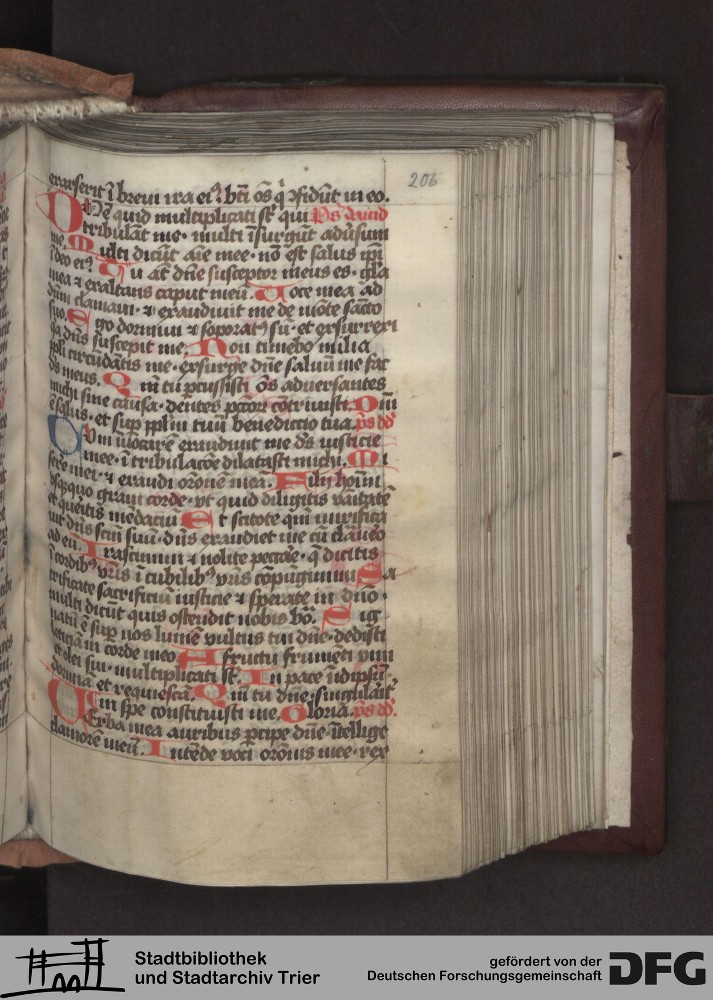 206
exarserit ī breui ira eiꝰ bti oēs q̄ ↄfidūt in eo.
Dn̄e quid multiplicati sūt qui Ps dauid
tribulāt me· multi īsurgūt aduersum
me. Multi dicūt aīe mee· nō est salus ipi
ī deo eiꝰ Tu aūt dn̄e susceptor meus es· gl̄a
mea ⁊ exaltans caput meū. Voce mea ad
dn̄m clamaui· ⁊ exaudiuit me de mōte sācto
suo. Ego dormiui ⁊ soporatꝰ sū· et exsurrexi
q̄a dn̄s suscepit me. Non timebo milia
ppli circūdātis me· exsurge dn̄e saluū me fac
ds meus. Qm̄ tu pcussisti oēs aduersantes
michi sine causa· dentes pctorū cōtriuisti. Dn̄i
ē salus· et sup pplm̄ tuū benedictio tua. ps dd
Cum īuocarē exaudiuit me ds iusticie
mee· ī tribulacōe dilatasti michi. Mi
sere mei· ⁊ exaudi orōnē meā. Filij hoīm
vsqꝫquo graui corde· vt quid diligitis vāitatē
et queritis mēdaciū Et scitote qm̄ mirifica
uit dn̄s scm̄ suū· dn̄s exaudiet me cū clamauero
ad eū. Irascimini ⁊ nolite peccare· q̄ dicitis
ī cordibꝰ vris ī cubilibꝰ vris cōpūgimini Sa
crificate sacrificiū iusticie ⁊ sperate in dn̄o·
multi dicūt quis ostendit nobis bōa. Sig
natū ē sup nos lumē vultus tui dn̄e· dedisti
leticiā in corde meo A fructu frumēti vini
et olei sui· multiplicati sūt. In pace ī idipsū·
dormiā et requiescā. Qm̄ tu dn̄e· singularit̄
in spe constituisti me. Gloria. ps dd.
Verba mea auribus pcipe dn̄e· ītellige
clamorē meū. Intēde voci orōnis mee· rex
Stadtbibliothek
und Stadtarchiv Trier
gefördert von der
Deutschen Forschungsgemeinschaft
DFG